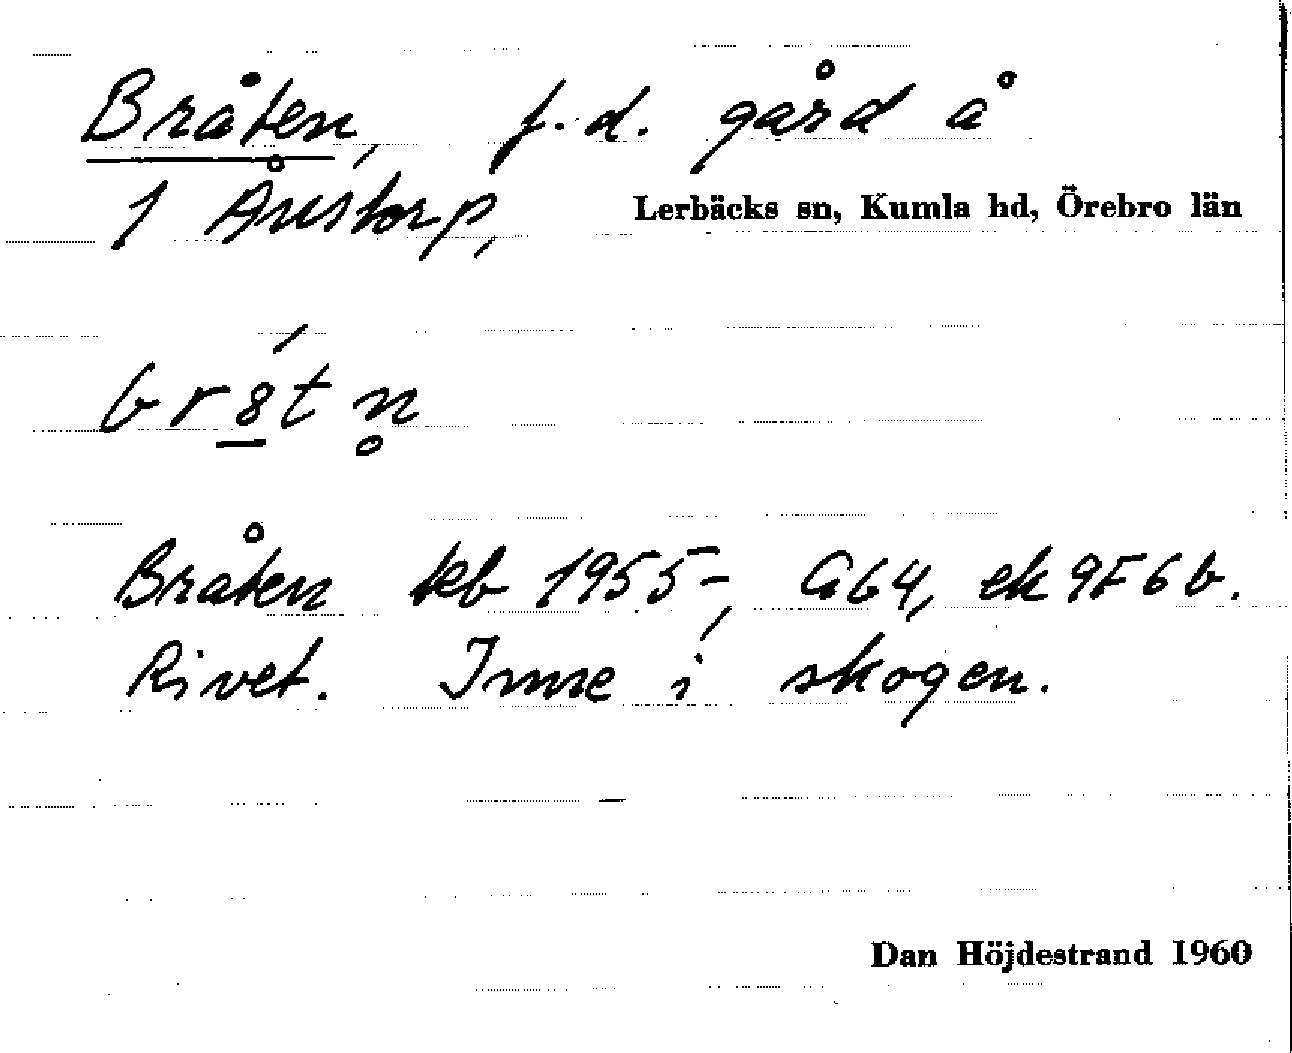 Bråten, f.d. gård å
1 Årstorp, Lerbäcks sn, Kumla hd, Örebro län
br8́tn̥
Bråten teb 1955-, G64, ek 9F6b.
Rivet. Inne i skogen.
Dan Höjdestrand 1960